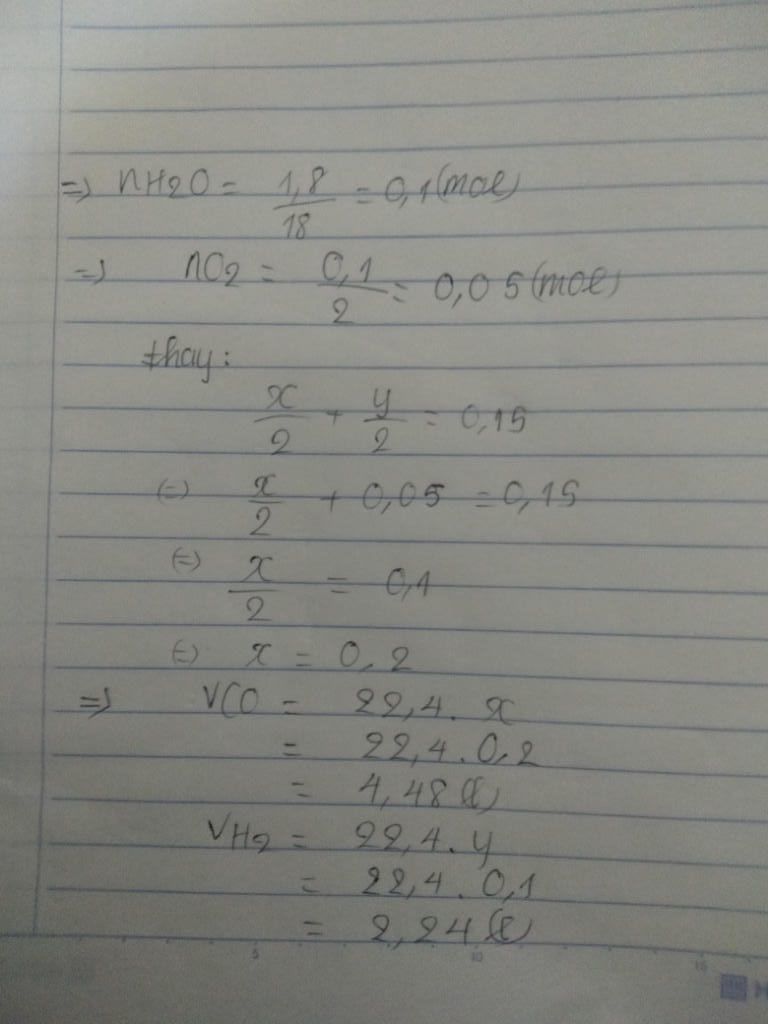 => nH2O = 1,8/18 = 0,1 (mol)
=> nO2 = 0,1/2 = 0,05 (mol)
thay:
x/2 + y/2 = 0,15
(=) x/2 + 0,05 = 0,15
(=) x/2 = 0,1
(=) x = 0,2
=> VCO = 22,4 . x
= 22,4 . 0,2
= 4,48 (l)
VH2 = 22,4 . y
= 22,4 . 0,1
= 2,24 (l)
5 10 15
H